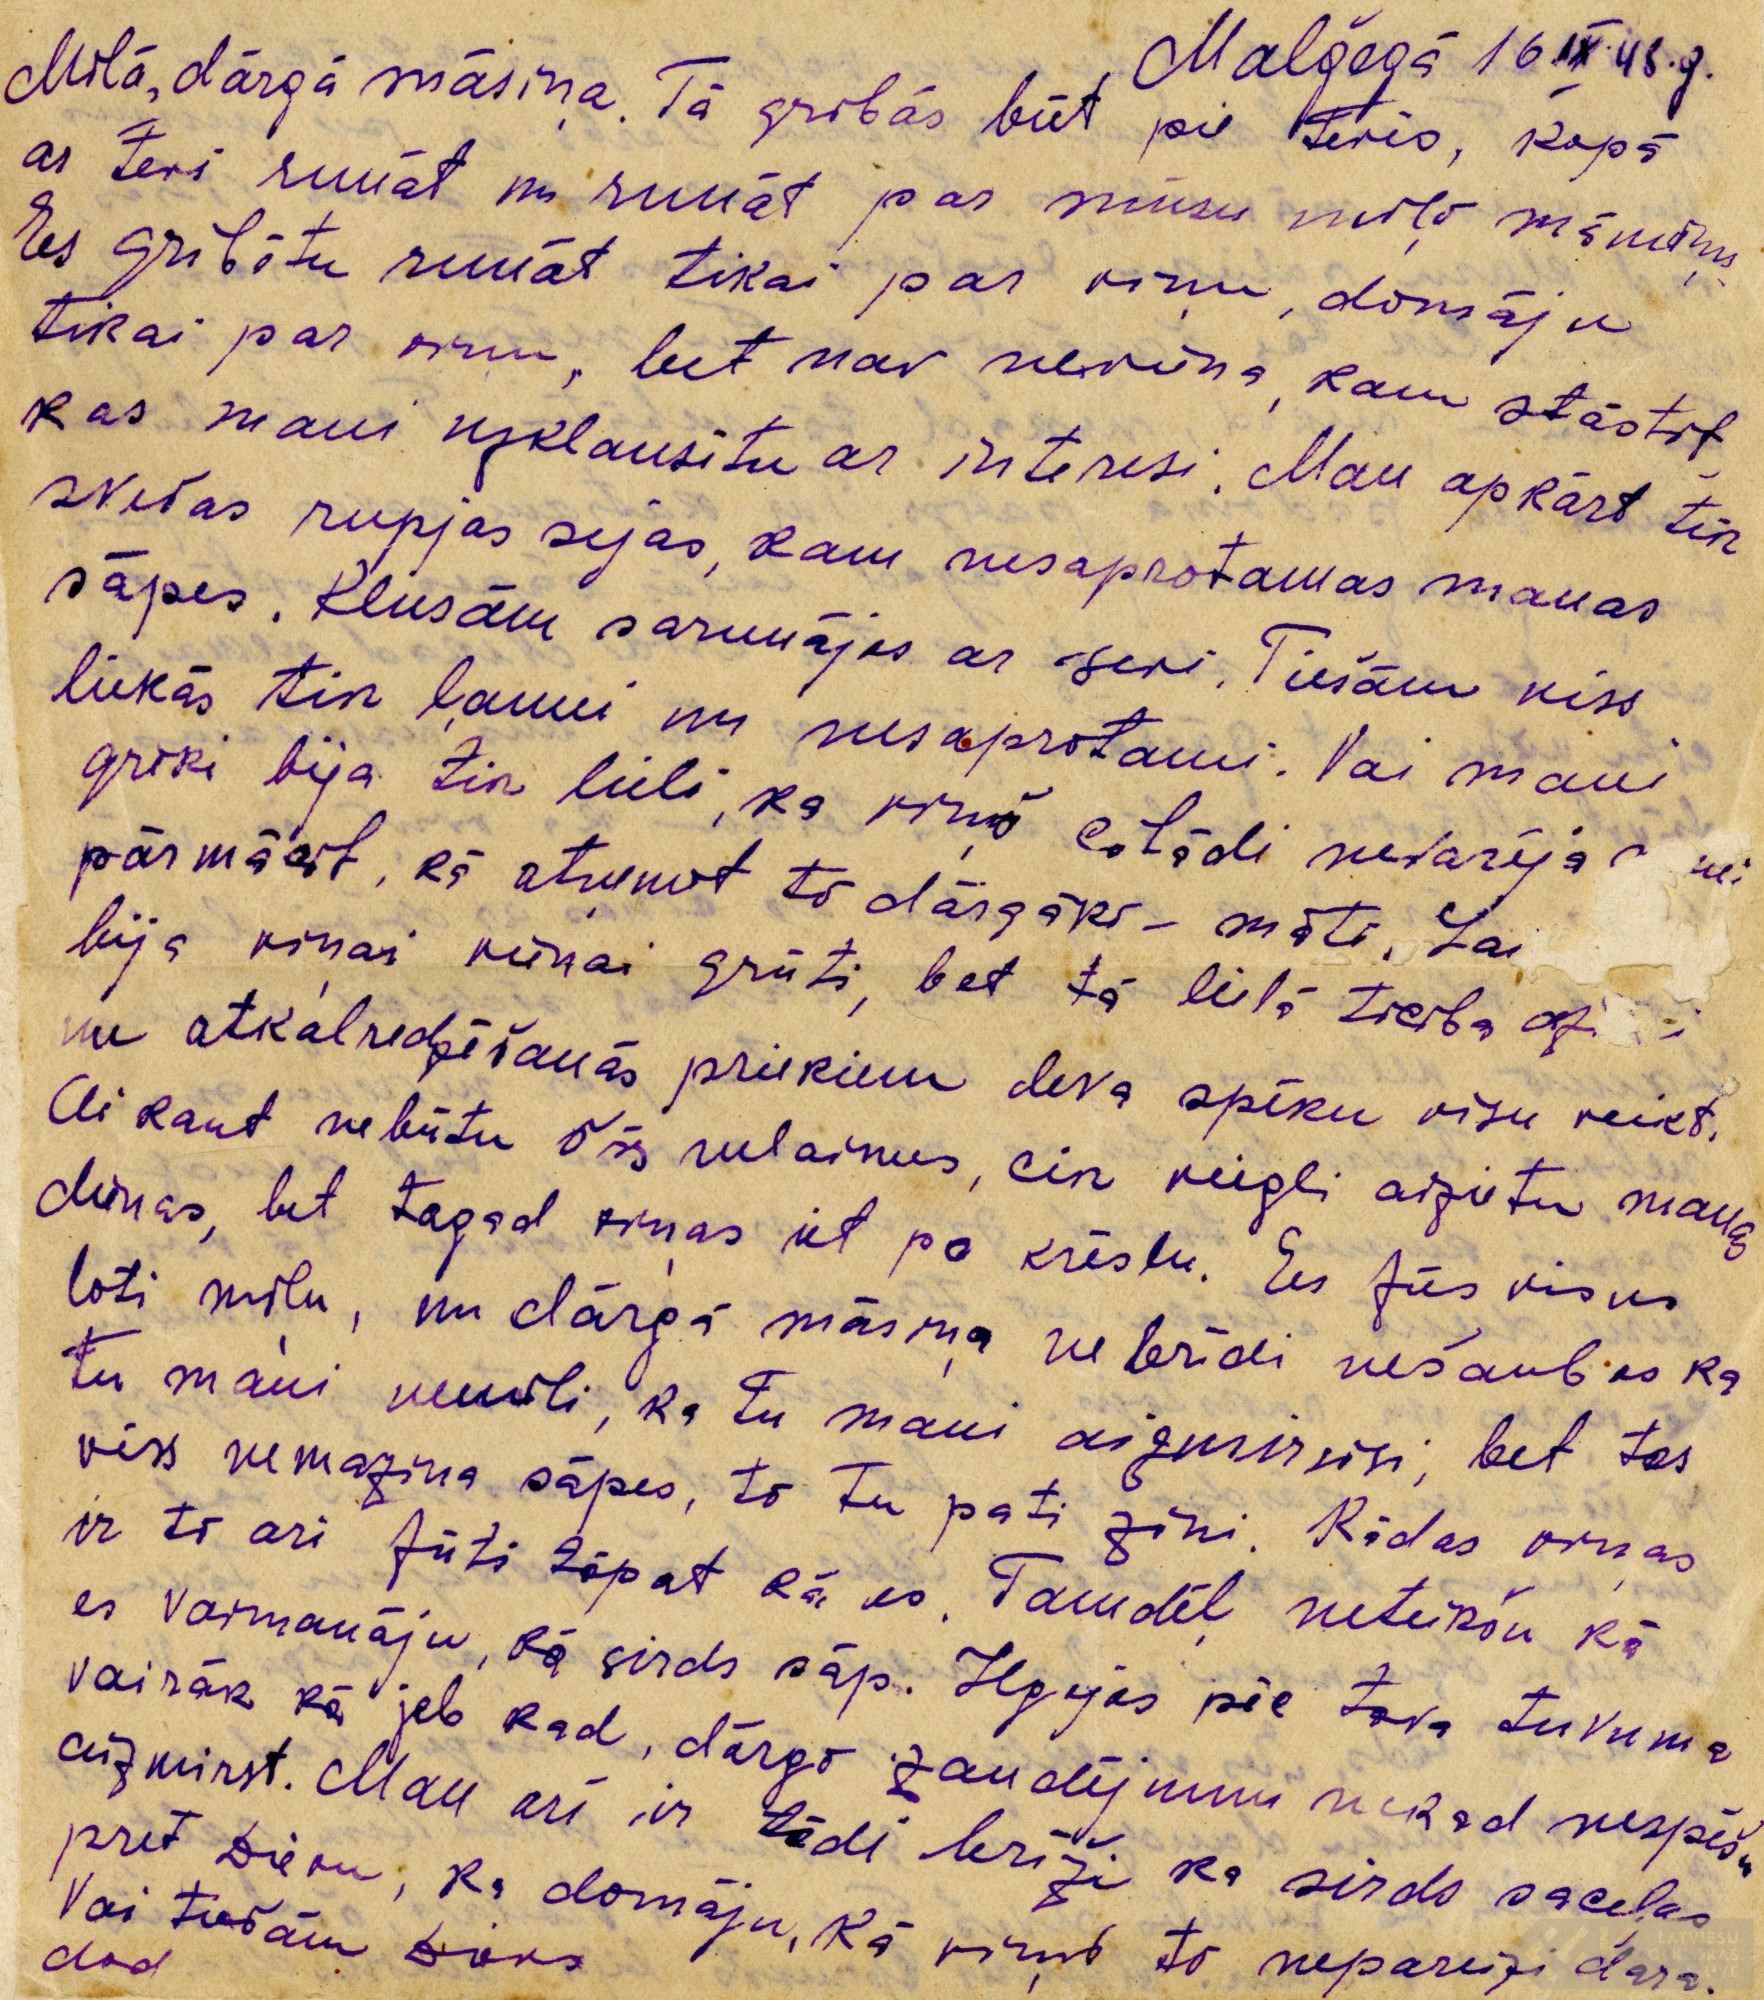 Malčegā 16 IX 48.g.
Mīļā, dārgā māsiņa. Tā gribās būt pie tevis, kopā
ar tevi runāt un runāt par mūsu mīļo māmiņu
Es gribētu runāt tikai par viņu, domāju
tikai par viņu, bet nav neviena, kam stāstīt,
kas mani uzklausītu ar interesi. Man apkārt tik
svešas rupjas sejas, kam nesaprotamas manas
sāpes. Klusām sarunājos ar sevi. Tiešām viss
liekās tik ļauni un nesaprotami. Vai mani
grēki bija tik lieli, ka viņš citādi nevarēja
pārmācīt, kā atņemot to dārgāko – māti. Lai
bija viņai vienai grūti, bet tā lielā ticība
un atkalredzēšanās priekiem deva spēku visu veikt.
Ai kaut nebūtu šīs nelaimes, cik viegli aizietu manas
dienas, bet tagad viņas iet pa krēslu. Es jūs visus
ļoti mīlu, un dārgā māsiņa ne brīdi nešaubos ka
tu mani nemīli, ka tu mani aizmirsīsi, bet tas
viss nemazina sāpes, to tu pati zini. Kādas viņas
ir to arī jūti tāpat kā es. Tamdēļ neteikšu kā
es vaimanāju, kā sirds sāp. Ilgojos pie tava tuvuma
vairāk kā jeb kad, dārgo zaudējumu nekad nespēšu
aizmirst. Man arī ir tādi brīži ka sirds saceļas
pret Dievu, ka domāju, kā viņš to nepareizi dara.
Vai tiešām Dievs
dod
LATVIEŠU